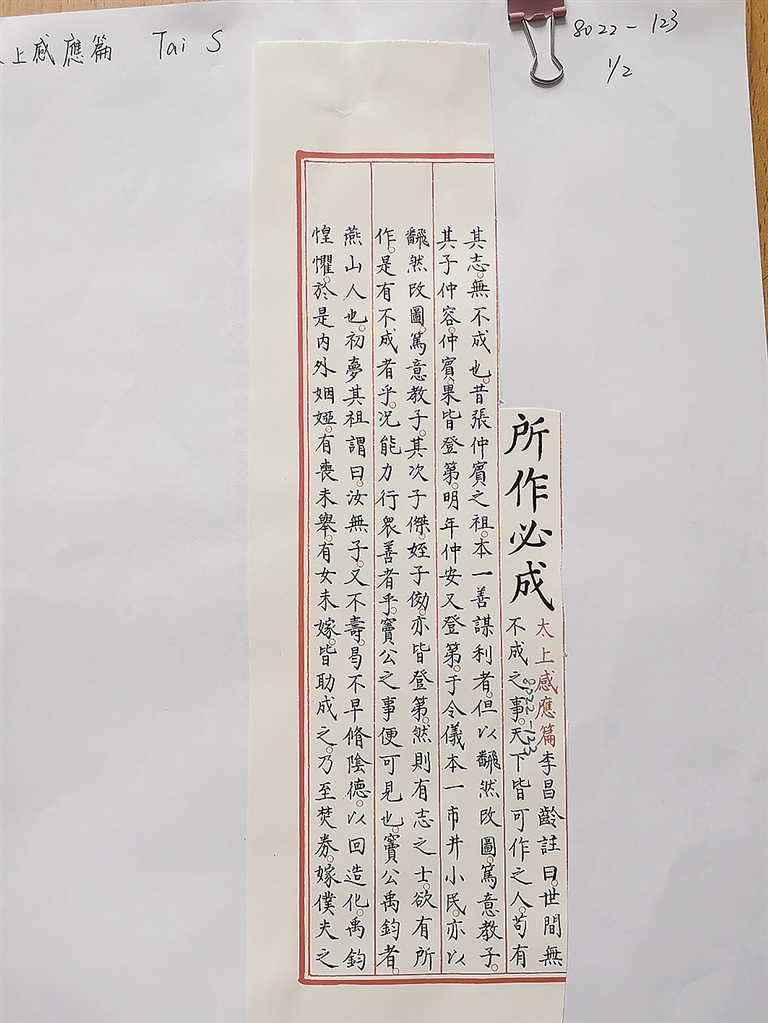 上感應篇 Tai S
8022-123
1/2
所作必成
太上感應篇李昌齡註曰。世間無
不成之事。天下皆可作之人。苟有
8022-123
其志。無不成也。昔張仲賓之祖。本一善謀利者。但以飜然改圖。篤意教子。
其子仲容。仲賓。果皆登第。明年仲安又登第。于令儀本一市井小民。亦以
飜然改圖。篤意教子。其次子傑。姪子俲。亦皆登第。然則有志之士。欲有所
作。是有不成者乎。況能力行眾善者乎。竇公之事便可見也。竇公禹鈞者。
燕山人也。初夢其祖謂曰。汝無子。又不壽。曷不早脩陰德。以回造化。禹鈞
惶懼。於是內外姻婭。有喪未舉。有女未嫁。皆助成之。乃至焚券。嫁僕夫之